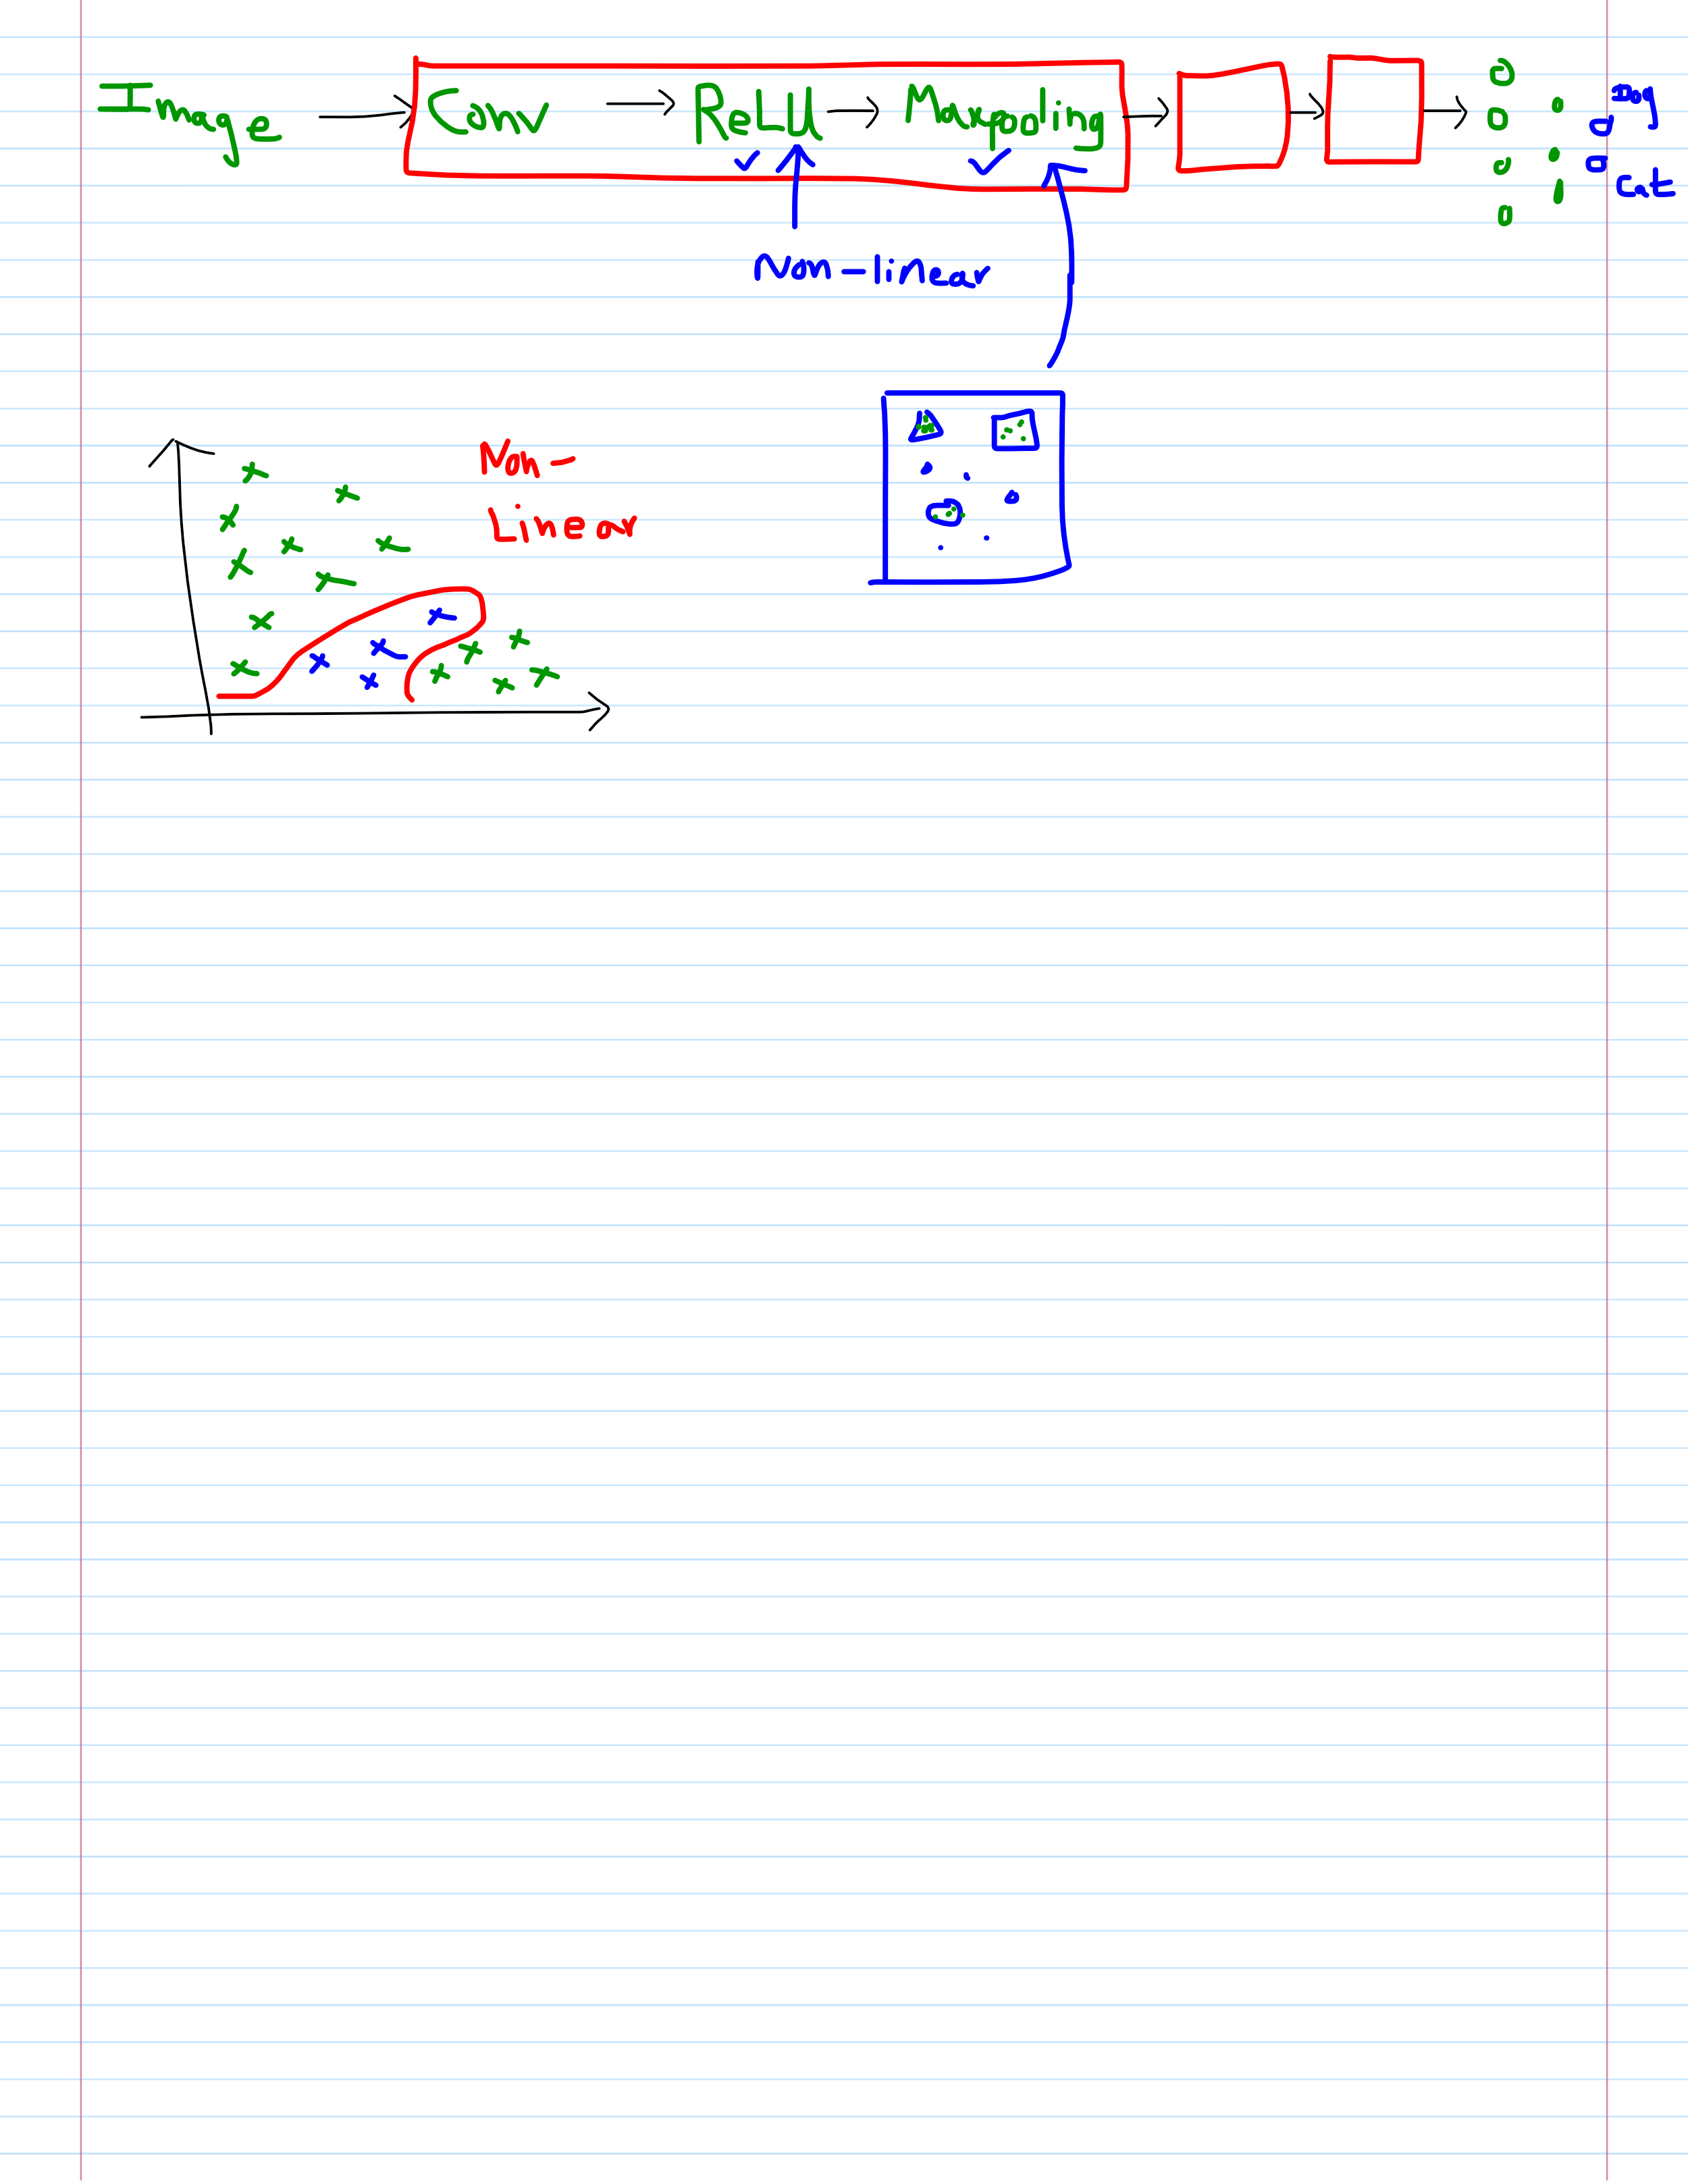 Image → Conv → ReLU → Maxpooling → → →
Dog
Cat
Non-linear
Non-
Linear